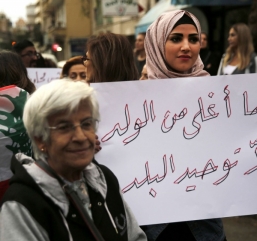 ما أغلى من الولد
توحيد البلد